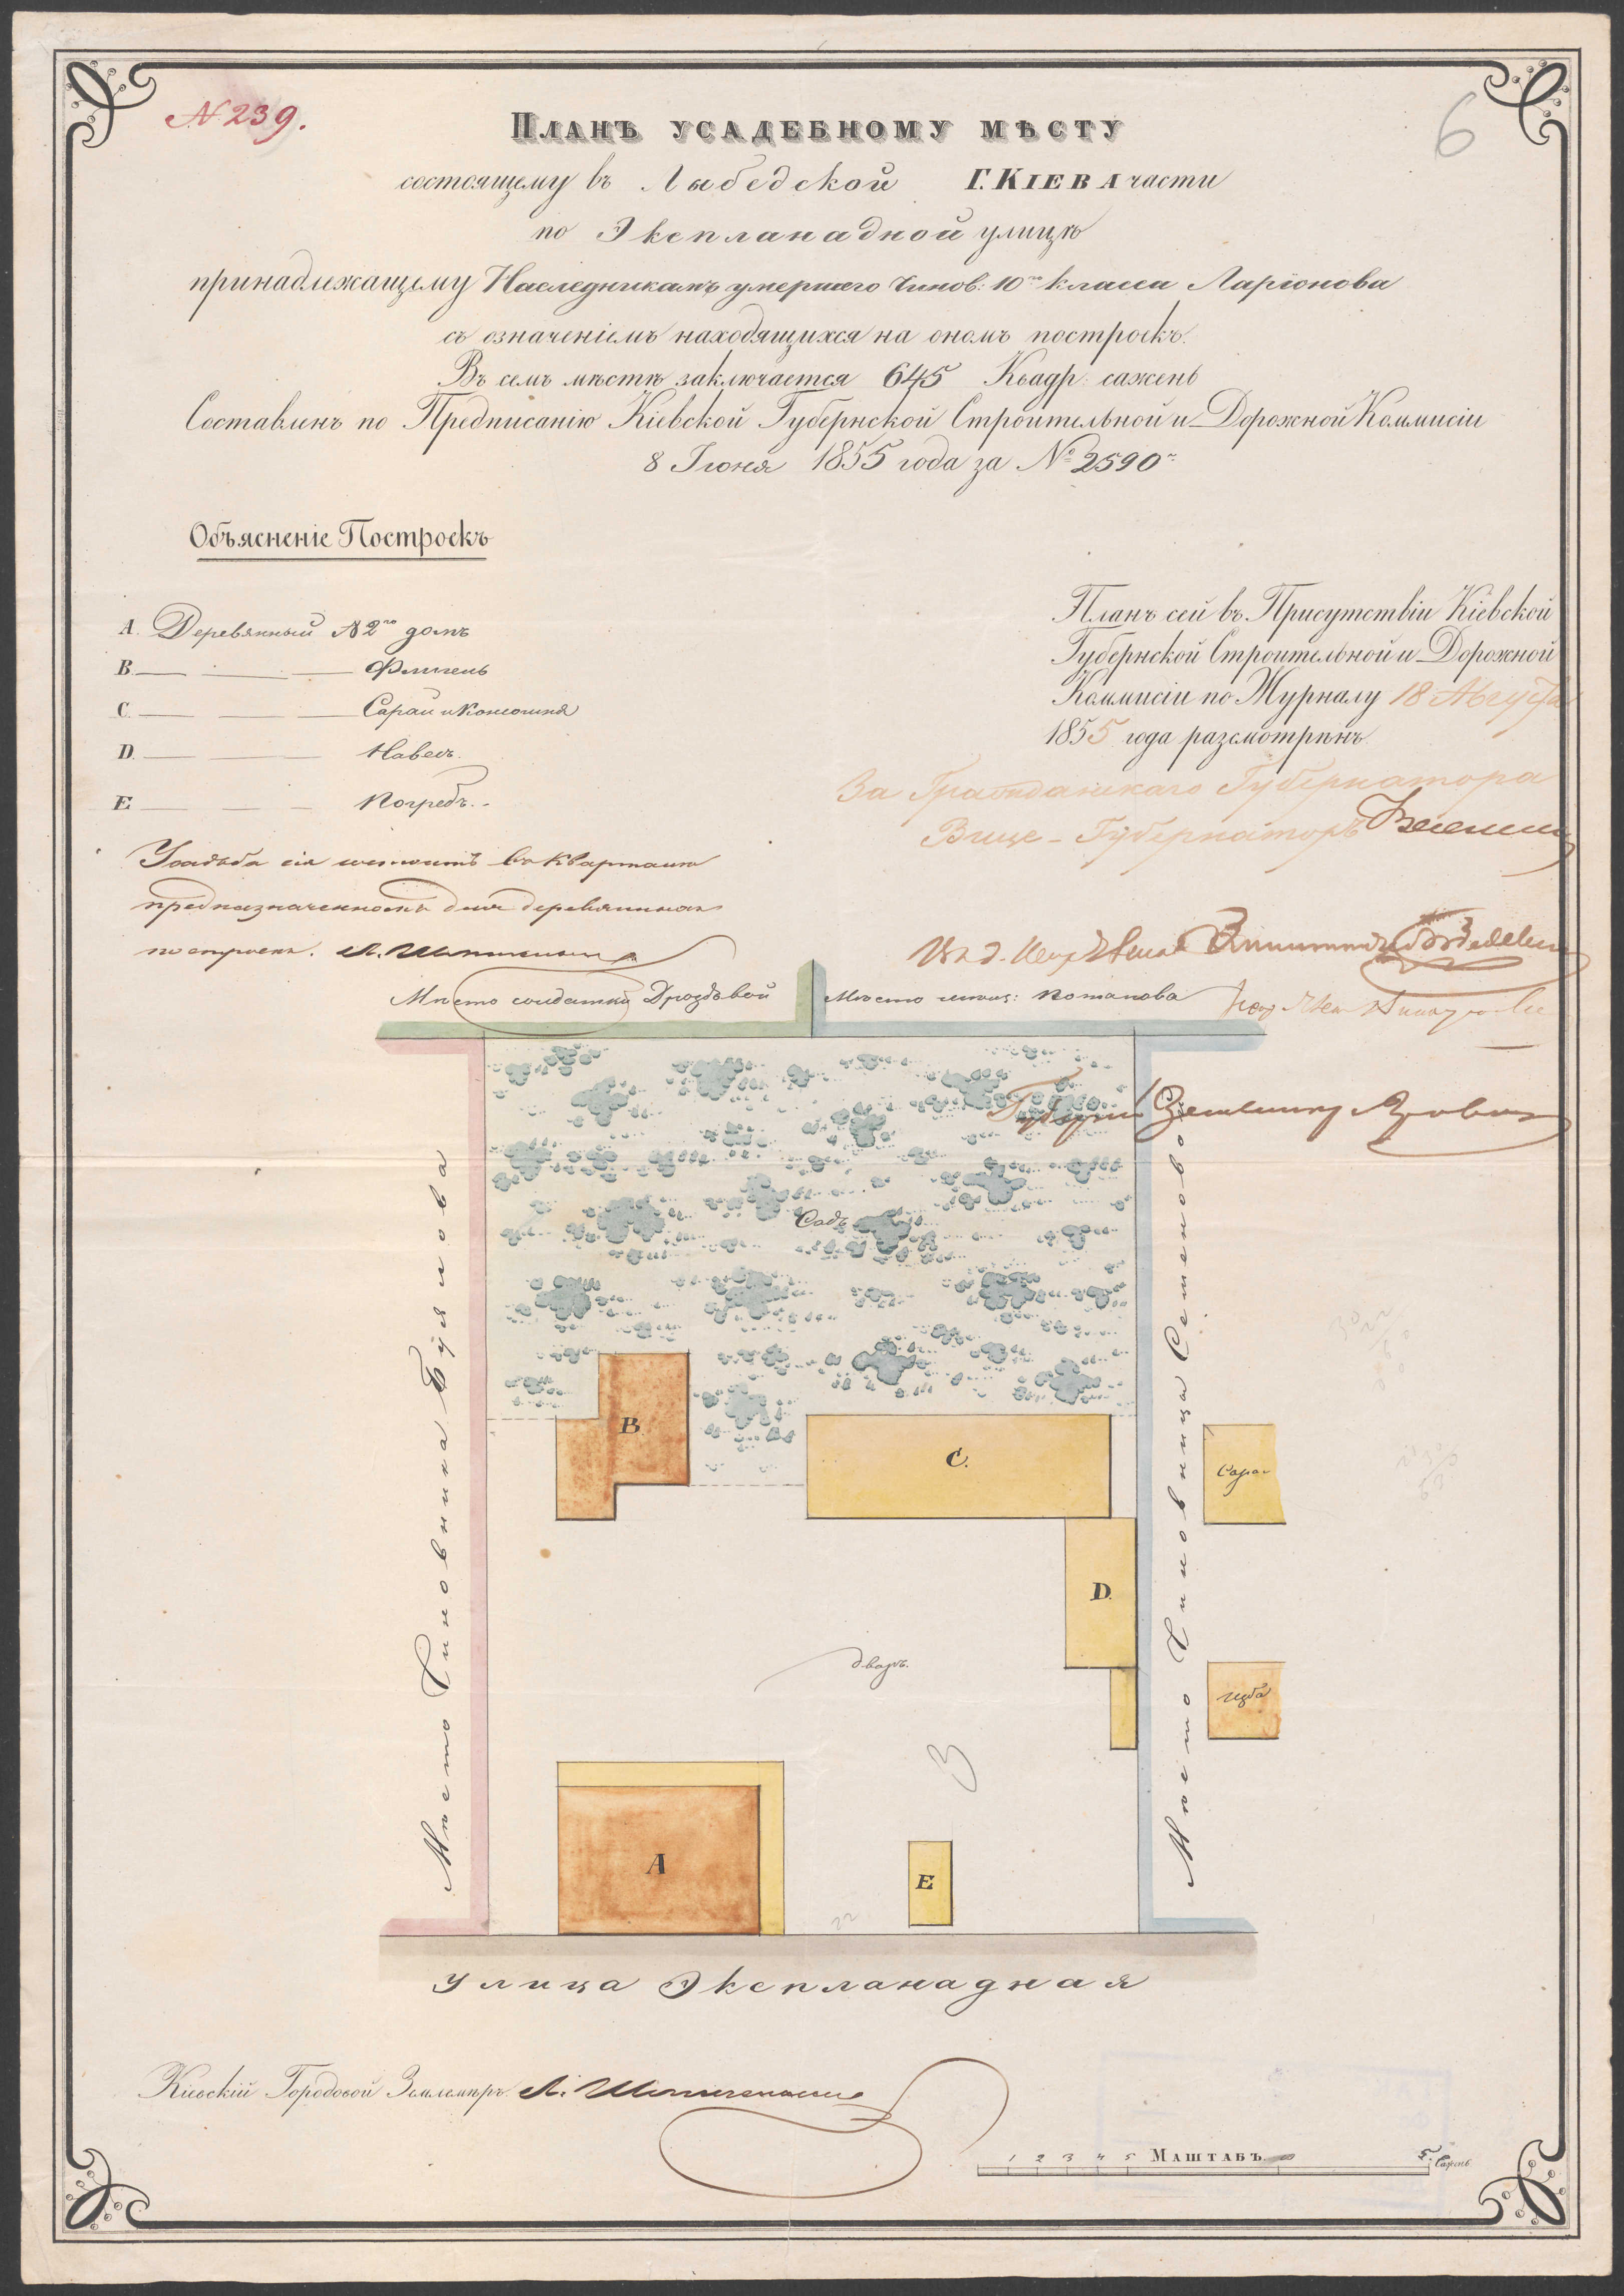 N 239.
6
Планъ усадебному мѣсту
состоящему въ Лыбедской Г. Кіева части
по Эксплападной улицѣ
принадлежащему Наследникамъ умершаго Чинов: 10го класса Ларіонова
съ означеніемъ находящихся на ономъ построекъ.
Въ семъ мѣстѣ заключается 645 Квадр: сажень
Составленъ по Предписанію Кіевской Губернской Строительной и Дорожной Коммисіи
8 Іюня 1855 года за № 2590
Объясненіе Построекъ
A. Деревянный N 2го домъ
B. — — — Флигель
C. — — — Сараи и Конюшня
D. — — — Навесъ.
E — — — Погребъ.
Усадьба сія состоитъ въ Кварталѣ
предназначенномъ для деревянныхъ
построекъ.
Планъ сей въ Присутствіи Кіевской
Губернской Строительной и Дорожной
Коммисіи по Журналу 18 Августа
1855 года разсмотрѣнъ.
За Гражданскаго Губернатора
Вице-Губернаторъ
Мѣсто солдатки Дроздовой
Мѣсто чинов: Потапова
Садъ
Мѣсто Чиновника Буялова
Мѣсто Чиновницы Семеновой
B.
C.
D.
Сарай
Изба
дворъ.
3
A
E
22
Улица Эксплападная
Кіевскій Городовой Землемѣръ Л.
1 2 3 4 5 Маштабъ
Сажень